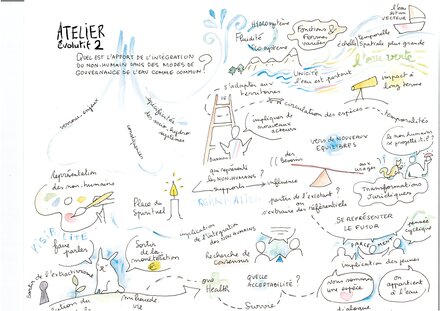 ATELIER
Évolutif 2
QUEL EST L'APPORT DE L'INTÉGRATION
DU NON-HUMAIN DANS DES MODES DE
GOUVERNANCE DE L'EAU COMME COMMUN ?
Hydrosystème
Fluidité
Ecosystème
Fonctions &
Formes
variées
l'eau est un
VECTEUR
échelle
temporelle
spatiale plus grande
l'eau verte
UNICITÉ
l'eau est partout
s'adapter aux
territoires
impact à
long terme
circulation des espèces
temporalités
impliquer de
nouveaux
acteurs
nouveaux enjeux
spécificités
des
hydro
systèmes
conséquences
Bassin
des
Besoins
VERS DE NOUVEAUX
ÉQUILIBRES
aux
usages
le non humain
se projette-t-il ?
qui représente
les NON-HUMAINS ?
supports
influence
Transformations
Juridiques
représentation
des non-humains
Place du
Spirituel
partir de l'existant ou
s'extraire des référentiels ?
SE REPRÉSENTER
LE FUTUR
pensée
cyclique
PARLEMENT
implication
de l'intégration
des non humains
VISIBILITÉ
faire
parler
Sortir
de la
monétation
Recherche de
Consensus
Sortir de l'extractivisme
QUELLE
ACCEPTABILITÉ ?
implication des jeunes
Nous sommes
une espèce
on
appartient à
l'eau
one
Health
milieu de
vie
Suivre
dialogue